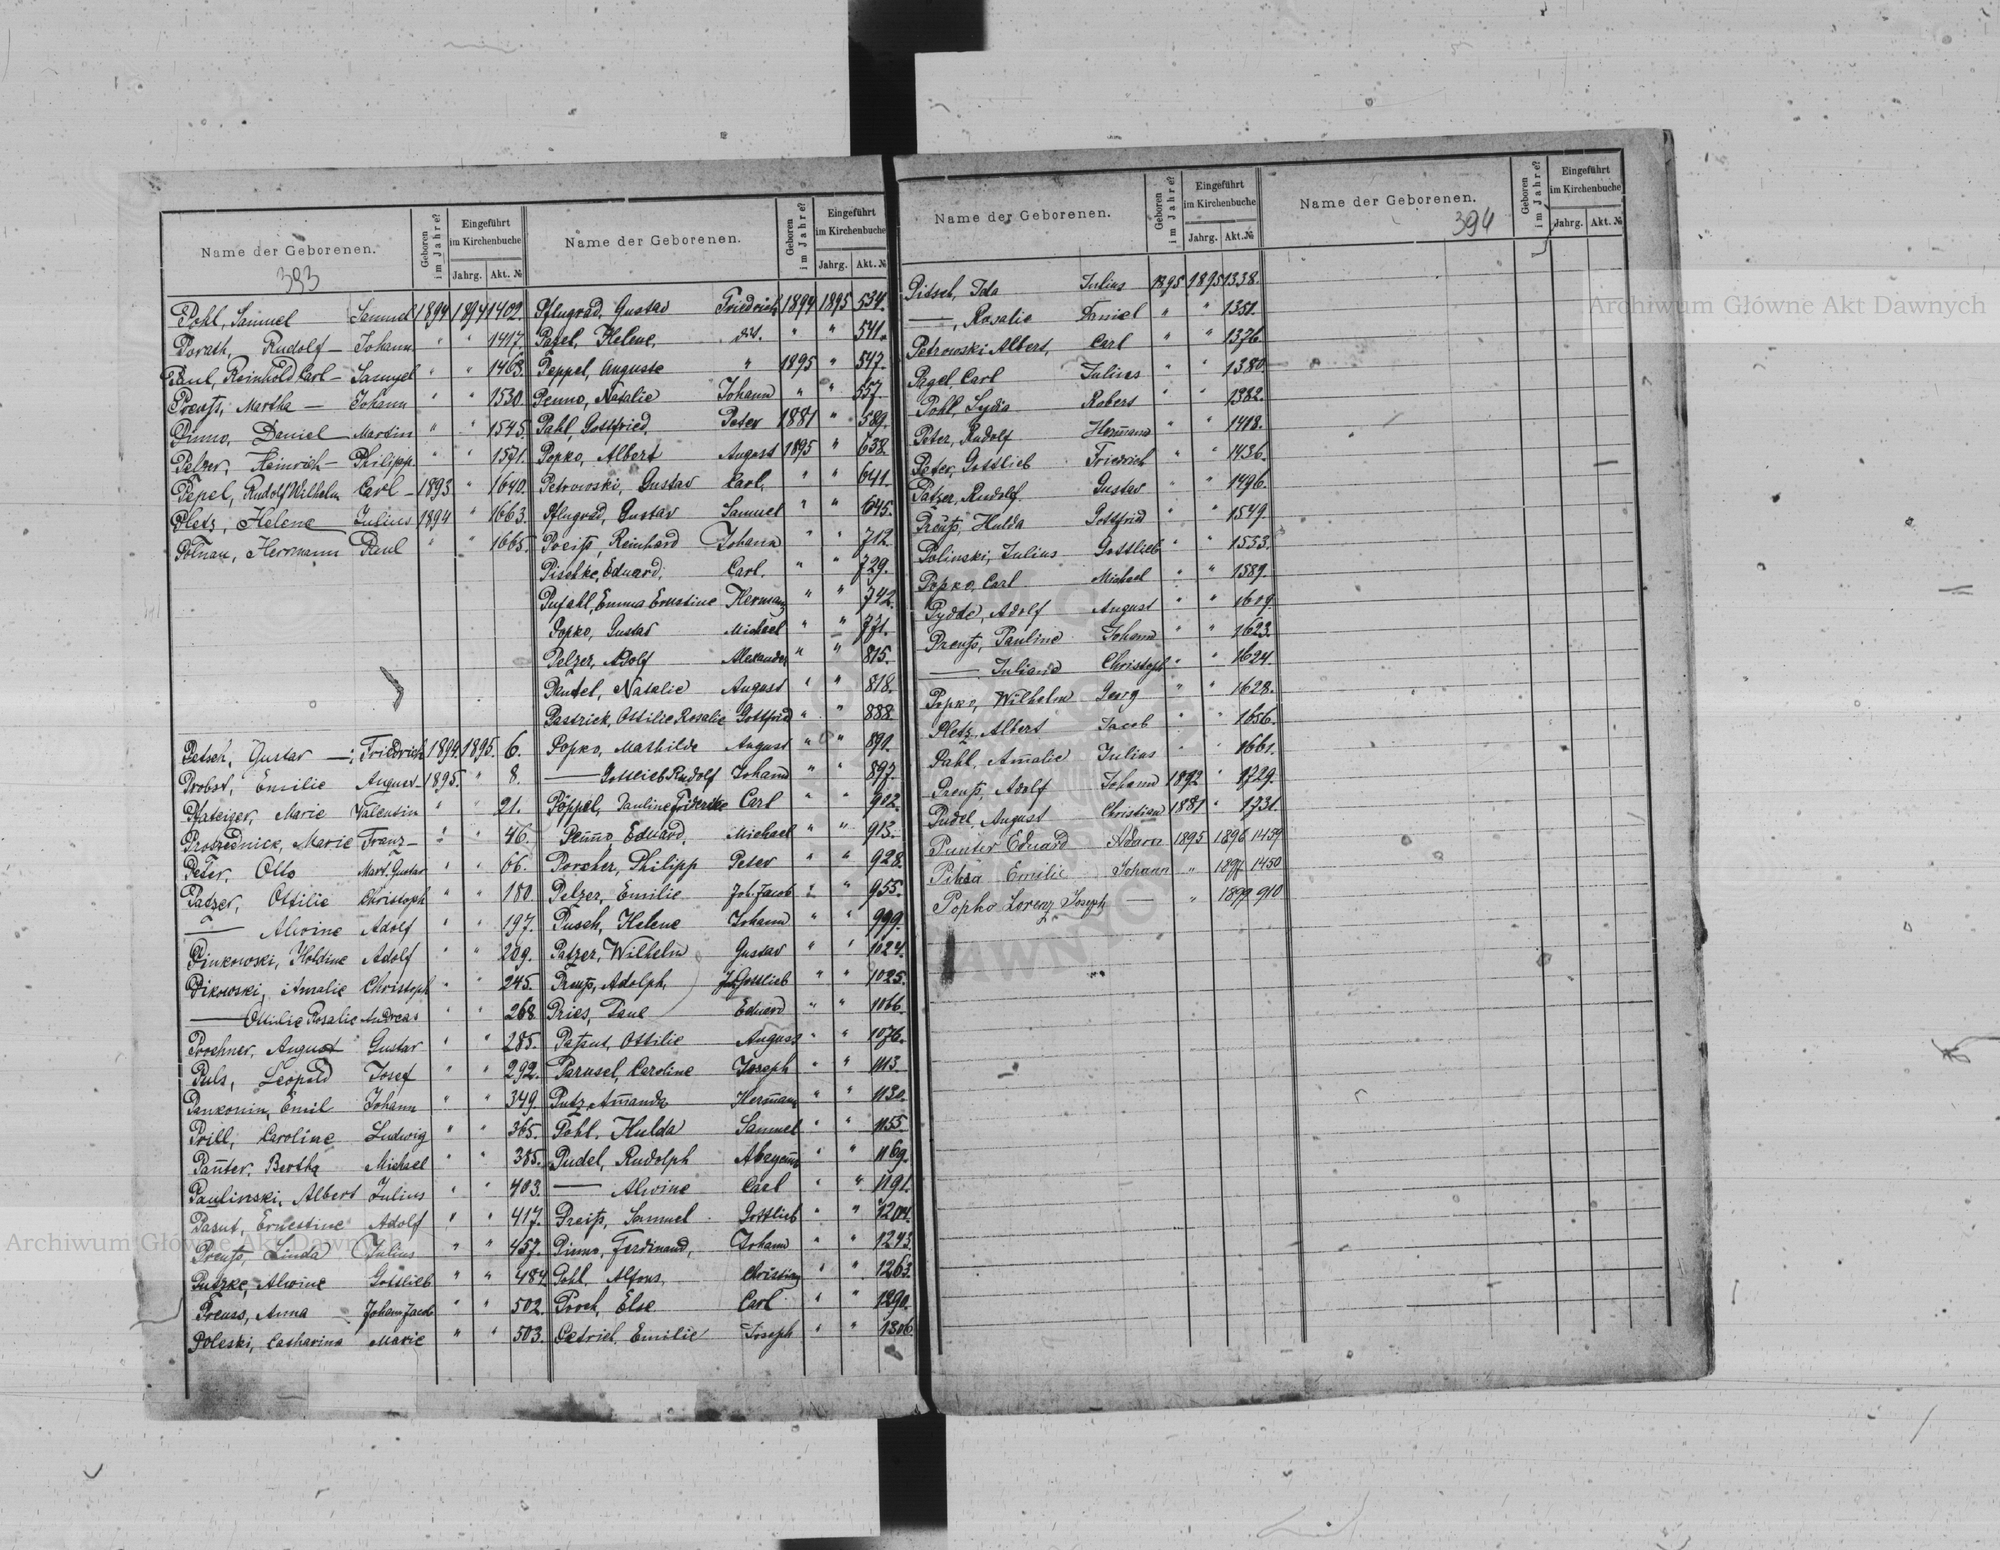 Name der Geborenen. Geboren im Jahre? Eingeführt im Kirchenbuche Jahrg. Akt. №
393
Pohl, Samuel Samuel 1894 1894 1402.
Porath, Rudolf — Johann " " 1417.
Paul, Reinhold Carl — Samuel " " 1463.
Preuß, Martha — Johann " " 1530.
Pinno, Daniel Martin " " 1545.
Pelzer, Heinrich — Philipp " " 1571.
Pepel, Rudolf Wilhelm Carl — 1893 " 1640.
Pletz, Helene Julius 1894 " 1663.
Herrmann Paul " " 1665.
Petsch, Gustav — Friedrich 1894. 1895. 6.
Probst, Emilie August 1895. " 8.
Marie Valentin " " 21.
Marie Franz — " " 46.
Peter, Otto Mart. Gustav " " 66.
Patzer, Ottilie Christoph " " 180.
— Alwine Adolf " " 197.
Pinkowski, Holdine Adolf " " 209.
Pikowski, Amalie Christoph " " 245.
— Ottilie Rosalie Andreas " " 268.
Prochner, August Gustav " " 285.
Puls, Leopold Josef " " 292.
Pankonin, Emil Johann " " 349.
Prill, Caroline Ludwig " " 365.
Panter, Bertha Michael " " 385.
Paulinski, Albert Julius " " 403.
Pasut, Ernestine Adolf " " 417.
Preuß, Linda Julius " " 457.
Putzke, Alwine Gottlieb " " 484
Preuss, Anna Johann Jacob " " 502.
Poleski, Catharina Marie " " 503.
Name der Geborenen. Geboren im Jahre? Eingeführt im Kirchenbuche Jahrg. Akt. №
Pflugrad, Gustav Friedrich 1894 1895 534.
Pagel, Helene, dit. " " 541.
Peppel, Auguste " 1895 " 547.
Penno, Natalie Johann " " 557.
Pahl, Gottfried, Peter 1881 " 589.
Popko, Albert August 1895 " 638.
Petrowski, Gustav Carl. " " 641.
Pflugrad, Gustav Samuel " " 645.
Preiß, Reinhard Johann " " 712.
Pischke, Eduard. Carl. " " 729.
Pufahl, Emma Ernstine Hermann " " 742.
Popko, Gustav Michael " " 771.
Pelzer, Adolf Alexander " " 815.
Natalie August " " 818.
Pastrick, Ottilie Rosalie Gottfried " " 888.
Popko, Mathilde August " " 890.
— Gottlieb Rudolf Johann " " 897.
Pöppel, Pauline Friderike Carl " " 902.
Penno, Eduard, Michael " " 913.
Porcher, Philipp Peter " " 928.
Pelzer, Emilie Joh. Jacob " " 955.
Pusch, Helene Johann " " 999.
Patzer, Wilhelm Gustav " " 1024.
Preuß, Adolph, Joh. Gottlieb " " 1025.
Pries, Paul Eduard " " 1066.
Ottilie August " " 1076.
Parusel, Caroline Joseph " " 1113.
Putz, Amanda Hermann " " 1130.
Pohl, Hulda Samuel " " 1155.
Pudel, Rudolph " " 1169.
— Alwine Carl " " 1191.
Preiß, Samuel Gottlieb " " 1204.
Pinno, Ferdinand, Johann " " 1243.
Pohl, Alfons, Christian " " 1263.
Porch, Else Carl " " 1290.
Emilie Joseph " " 1306
Name der Geborenen. Geboren im Jahre? Eingeführt im Kirchenbuche Jahrg. Akt. №
Pitsch, Ida Julius 1895 1895 1338.
—, Rosalie Daniel " " 1351.
Petrowski Albert, Carl " " 1376.
Pagel Carl Julius " " 1380.
Pohl, Lydia Robert " " 1382.
Peter, Rudolf Hermann " " 1418.
Peter, Gottlieb Friedrich " " 1436.
Patzer, Rudolf Gustav " " 1496.
Preuß, Hulda Gottfried " " 1549.
Polinski, Julius Gottlieb " " 1553.
Popko, Carl Michael " " 1589.
Pydde, Adolf August " " 1619.
Preuß, Pauline Johann " " 1623.
— Juliana Christoph " " 1624.
Popko, Wilhelm Georg " " 1628.
Pletz, Albert Jacob " " 1656.
Pahl, Amalie Julius " " 1661.
Preuß, Adolf Johann 1892 " 1729.
Pudel, August Christian 1881 " 1731.
Punter Eduard Adam 1895 1896 1459
Emilie Johann " 1450
Popko Lorenz Joseph — " 1899 910
Name der Geborenen. Geboren im Jahre? Eingeführt im Kirchenbuche Jahrg. Akt. №
394
Archiwum Główne Akt Dawnych
Archiwum Główne Akt Dawnych